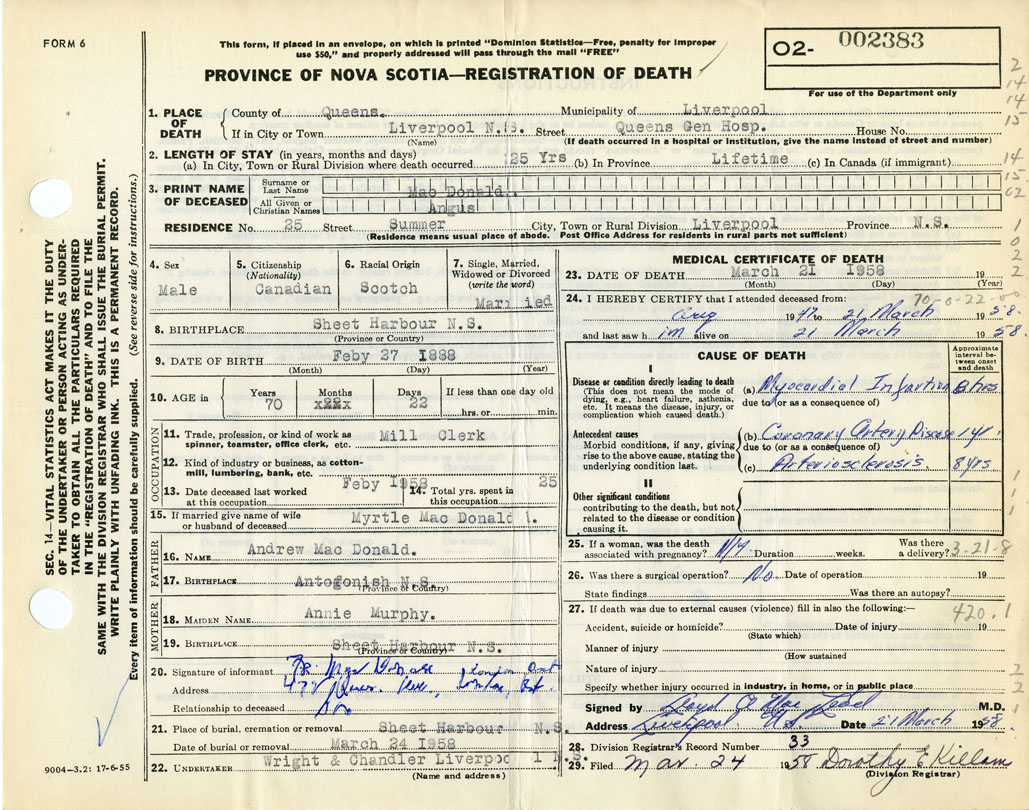 FORM 6
This form, if placed in an envelope, on which is printed "Dominion Statistics—Free, penalty for improper
use $50," and properly addressed will pass through the mail "FREE"
PROVINCE OF NOVA SCOTIA—REGISTRATION OF DEATH
O2- 002383
For use of the Department only
SEC. 14—VITAL STATISTICS ACT MAKES IT THE DUTY
OF THE UNDERTAKER OR PERSON ACTING AS UNDER-
TAKER TO OBTAIN ALL THE PARTICULARS REQUIRED
IN THE "REGISTRATION OF DEATH" AND TO FILE THE
SAME WITH THE DIVISION REGISTRAR WHO SHALL ISSUE THE BURIAL PERMIT.
WRITE PLAINLY WITH UNFADING INK. THIS IS A PERMANENT RECORD.
Every item of information should be carefully supplied. (See reverse side for instructions.)
1. PLACE OF DEATH County of Queens. Municipality of Liverpool
If in City or Town Liverpool N.S. Street Queens Gen Hosp. House No.
(Name) (If death occurred in a hospital or institution, give the name instead of street and number)
2. LENGTH OF STAY (in years, months and days)
(a) In City, Town or Rural Division where death occurred 25 Yrs (b) In Province Lifetime (c) In Canada (if immigrant)
3. PRINT NAME OF DECEASED
Surname or Last Name Mac Donald.
All Given or Christian Names Angus
RESIDENCE No. 25 Street Summer City, Town or Rural Division Liverpool Province N.S.
(Residence means usual place of abode. Post Office Address for residents in rural parts not sufficient)
4. Sex
Male
5. Citizenship
(Nationality)
Canadian
6. Racial Origin
Scotch
7. Single, Married,
Widowed or Divorced
(write the word)
Married
8. BIRTHPLACE Sheet Harbour N.S.
(Province or Country)
9. DATE OF BIRTH Feby 27 1888
(Month) (Day) (Year)
10. AGE in
Years 70
Months xxxx
Days 22
If less than one day old
hrs. or min.
OCCUPATION
11. Trade, profession, or kind of work as
spinner, teamster, office clerk, etc. Mill Clerk
12. Kind of industry or business, as cotton-
mill, lumbering, bank, etc.
13. Date deceased last worked
at this occupation Feby 1958
14. Total yrs. spent in
this occupation 25
15. If married give name of wife
or husband of deceased Myrtle Mac Donald.
FATHER
16. NAME Andrew Mac Donald.
17. BIRTHPLACE Antogonish N.S.
(Province or Country)
MOTHER
18. MAIDEN NAME Annie Murphy.
19. BIRTHPLACE Sheet Harbour N.S.
(Province or Country)
20. Signature of informant London Ont
Address
Relationship to deceased
21. Place of burial, cremation or removal Sheet Harbour N.S.
Date of burial or removal March 24 1958
22. UNDERTAKER Wright & Chandler Liverpool N.S.
(Name and address)
9004—3.2: 17-6-55
MEDICAL CERTIFICATE OF DEATH
23. DATE OF DEATH March 21 1958 19
(Month) (Day) (Year)
24. I HEREBY CERTIFY that I attended deceased from: 70-0-22-00
Aug 19 to 21 March 1958.
and last saw him alive on 21 March 1958.
CAUSE OF DEATH
Approximate
interval be-
tween onset
and death
I
Disease or condition directly leading to death
(This does not mean the mode of
dying, e.g., heart failure, asthenia,
etc. It means the disease, injury, or
complication which caused death.)
(a) Myocardial Infarction 8 hrs
due to (or as a consequence of)
Antecedent causes
Morbid conditions, if any, giving
rise to the above cause, stating the
underlying condition last.
(b) Coronary Artery Disease
due to (or as a consequence of)
(c) Arteriosclerosis. 8 yrs
II
Other significant conditions
contributing to the death, but not
related to the disease or condition
causing it.
25. If a woman, was the death
associated with pregnancy? N/A Duration weeks.
Was there
a delivery? 3-21-8
26. Was there a surgical operation? No. Date of operation 19
State findings Was there an autopsy?
27. If death was due to external causes (violence) fill in also the following:— 420.1
Accident, suicide or homicide? Date of injury 19
(State which)
Manner of injury
(How sustained
Nature of injury
Specify whether injury occurred in industry, in home, or in public place
Signed by Lloyd M.D.
Address Liverpool N.S. Date 21 March 1958.
28. Division Registrar's Record Number 33
29. Filed Mar. 24 1958 Dorothy E Killam
(Division Registrar)
2
14
14
15
14
15.
02
1
0
2
2
1
1
1
2
2
1